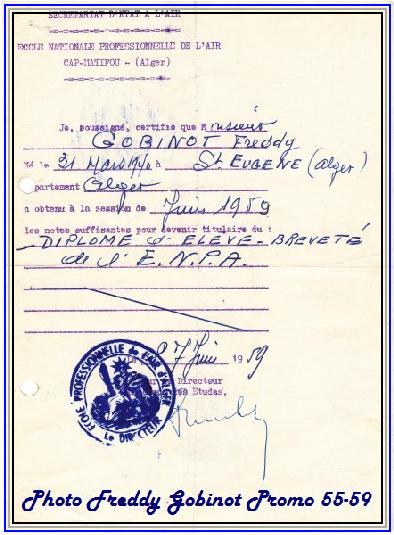 SECRETARIAT D'ETAT A L'AIR
ECOLE NATIONALE PROFESSIONNELLE DE L'AIR
CAP-MATIFOU - (Alger)
Je, soussigné, certifie que Monsieur
GOBINOT Freddy
Né le 31 Mars 1940 à St EUGENE (Alger)
partement Alger
a obtenu à la session de Juin 1959
les notes suffisantes pour devenir titulaire du
DIPLOME d'ELEVE-BREVETÉ
de l'E.N.P.A.
07 Juin 1959
Directeur
des Etudes,
ECOLE PROFESSIONNELLE de l'AIR d'ALGER
Le DIRECTEUR
Photo Freddy Gobinot Promo 55-59